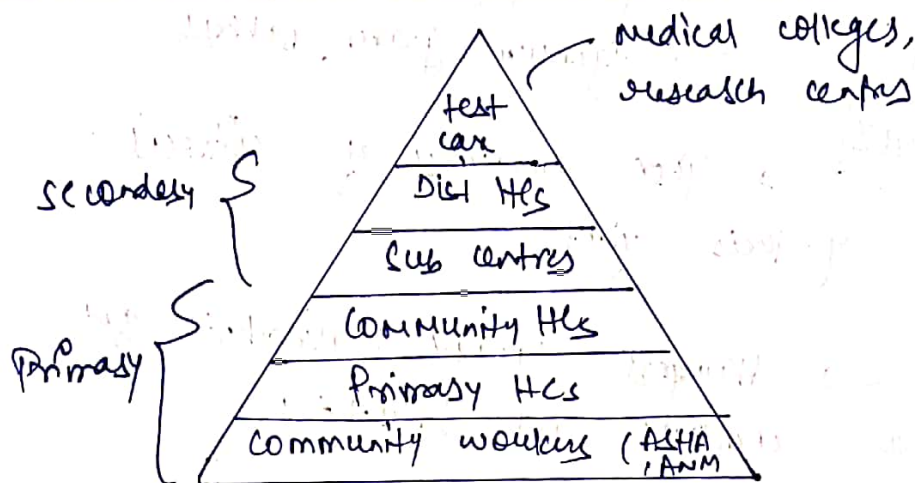 medical colleges,
research centres
test
care
secondary
Dist HCs
Sub centres
Community HCs
Primary
Primary HCs
Community workers (ASHA
, ANM